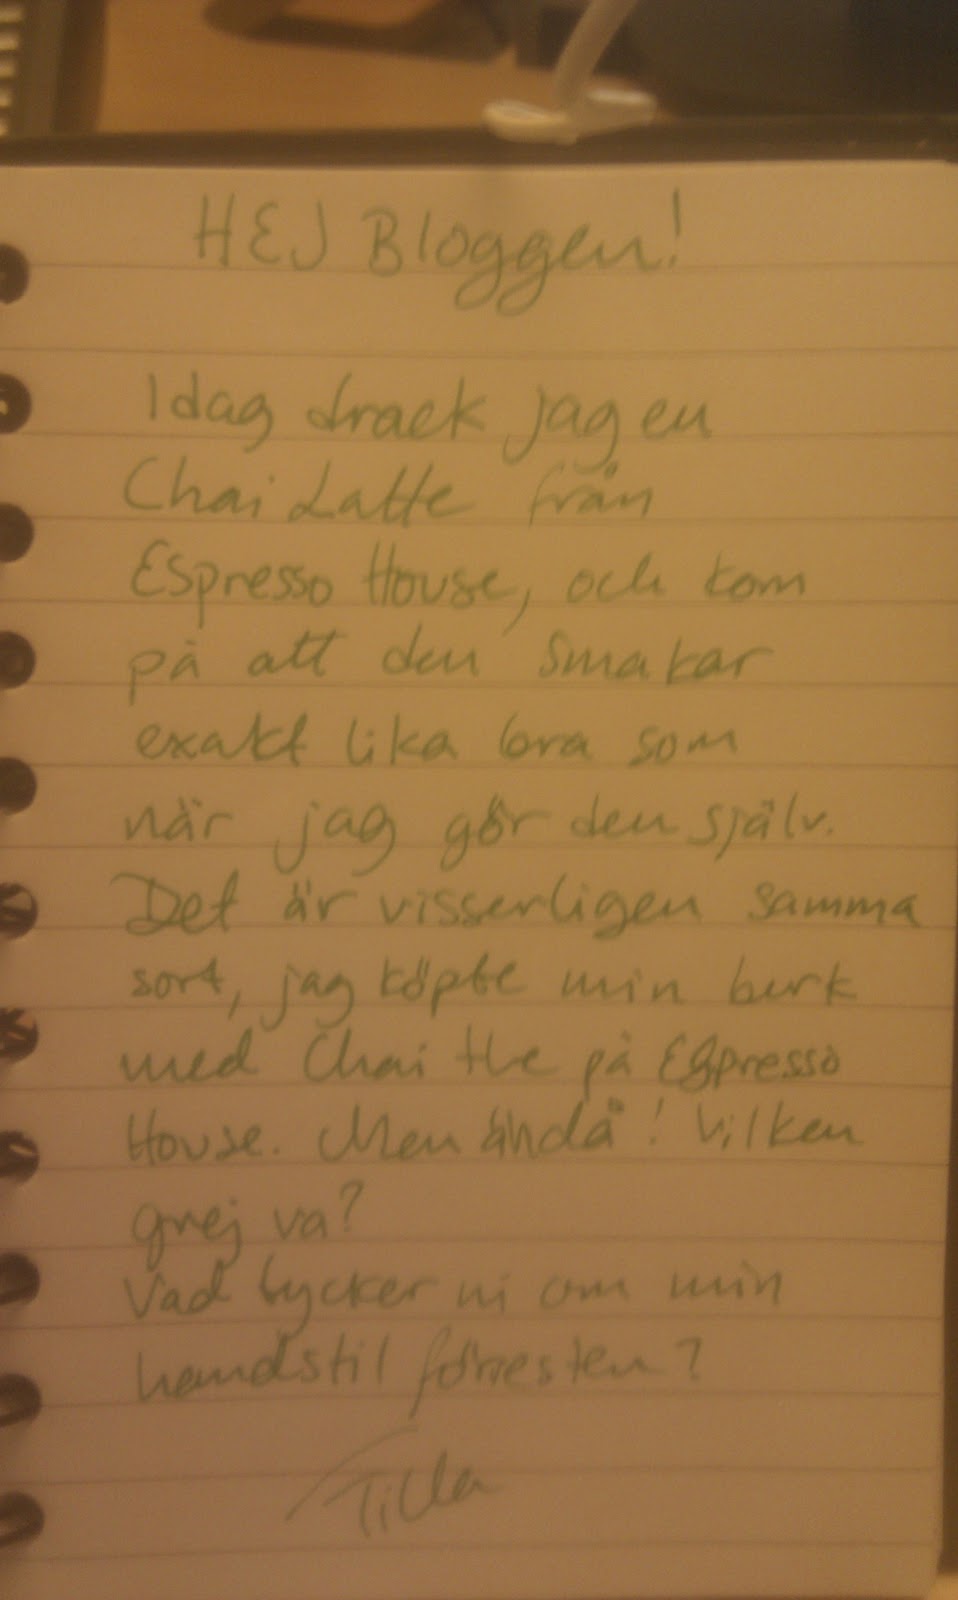 HEJ Bloggen!
Idag drack jag en
Chai Latte från
Espresso House, och kom
på att den smakar
exakt lika bra som
när jag gör den själv.
Det är visserligen samma
sort, jag köpte min burk
med Chai the på Espresso
House. Men ändå! Vilken
grej va?
Vad tycker ni om min
handstil förresten?
Tilla